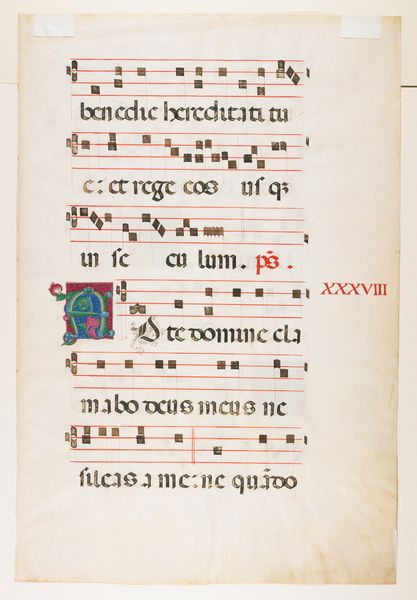 benedic hereditati tu
e: et rege eos usqꝫ
in se cu lum. ps̄.
AD te domine cla
XXXVIII
mabo deus meus ne
sileas a me: ne quādo